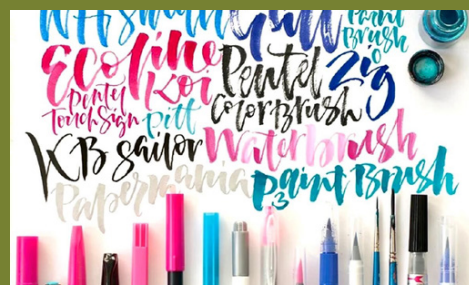 Paint
Brush
Ecoline
Koi
Pentel
Zig
Pentel
TouchSign
Pitt
ColorBrush
KB sailor
Waterbrush
Papermania
Paint Brush